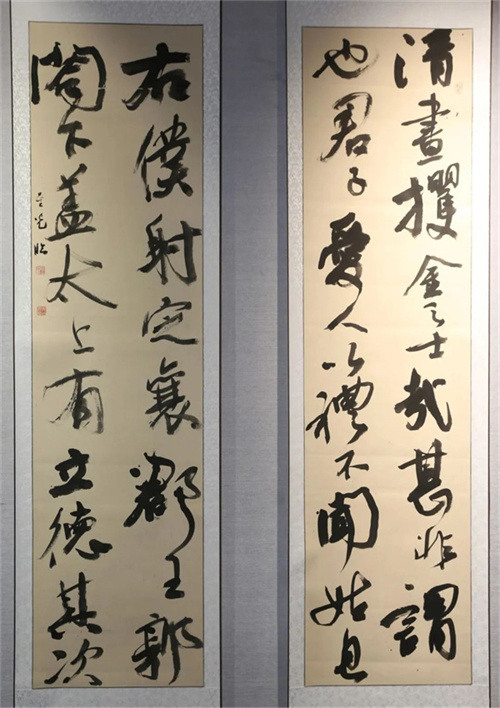 清晝攫金之士哉甚非謂
也君子愛人以禮不聞姑息
右僕射定襄郡王郭
閤下蓋太上有立德其次